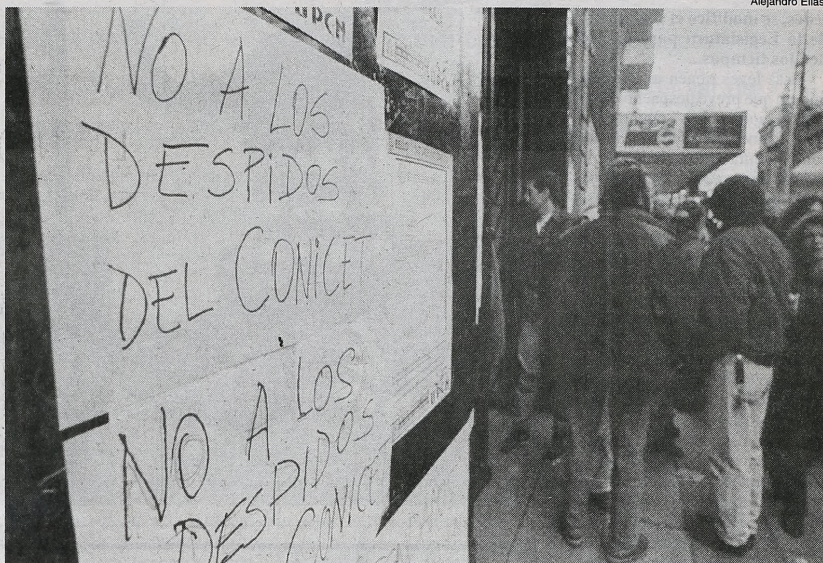 Alejandro Elías
UPCN
NO A LOS
DESPIDOS
DEL CONICET
NO A LOS
DESPIDOS
CONICET
UPCN
PEPSI